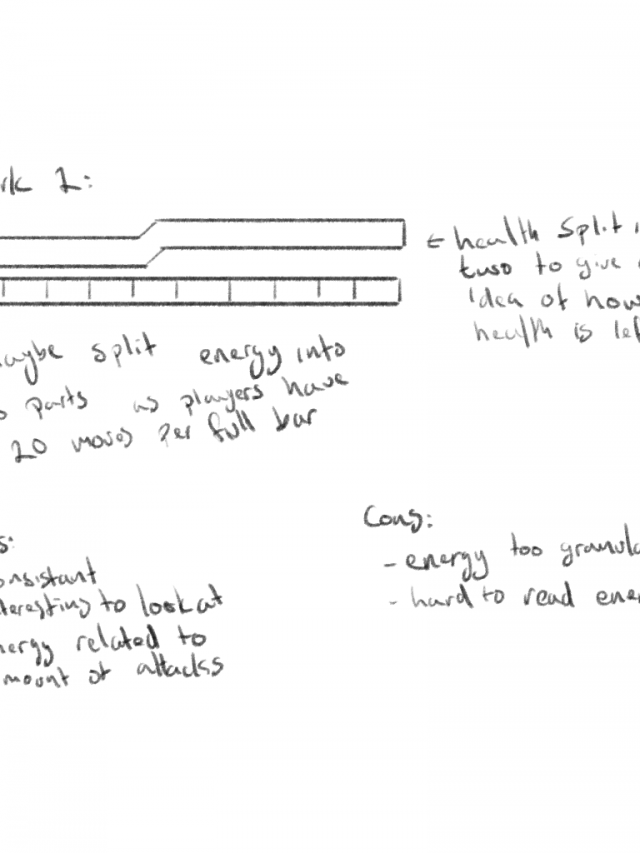 rk 1:
← health split i
two to give a
idea of how
health is lef
aybe split energy into
o parts as players have
20 moves per full bar
s:
onsistant
teresting to look at
nergy related to
mount of attacks
Cons:
- energy too granula
- hard to read ener